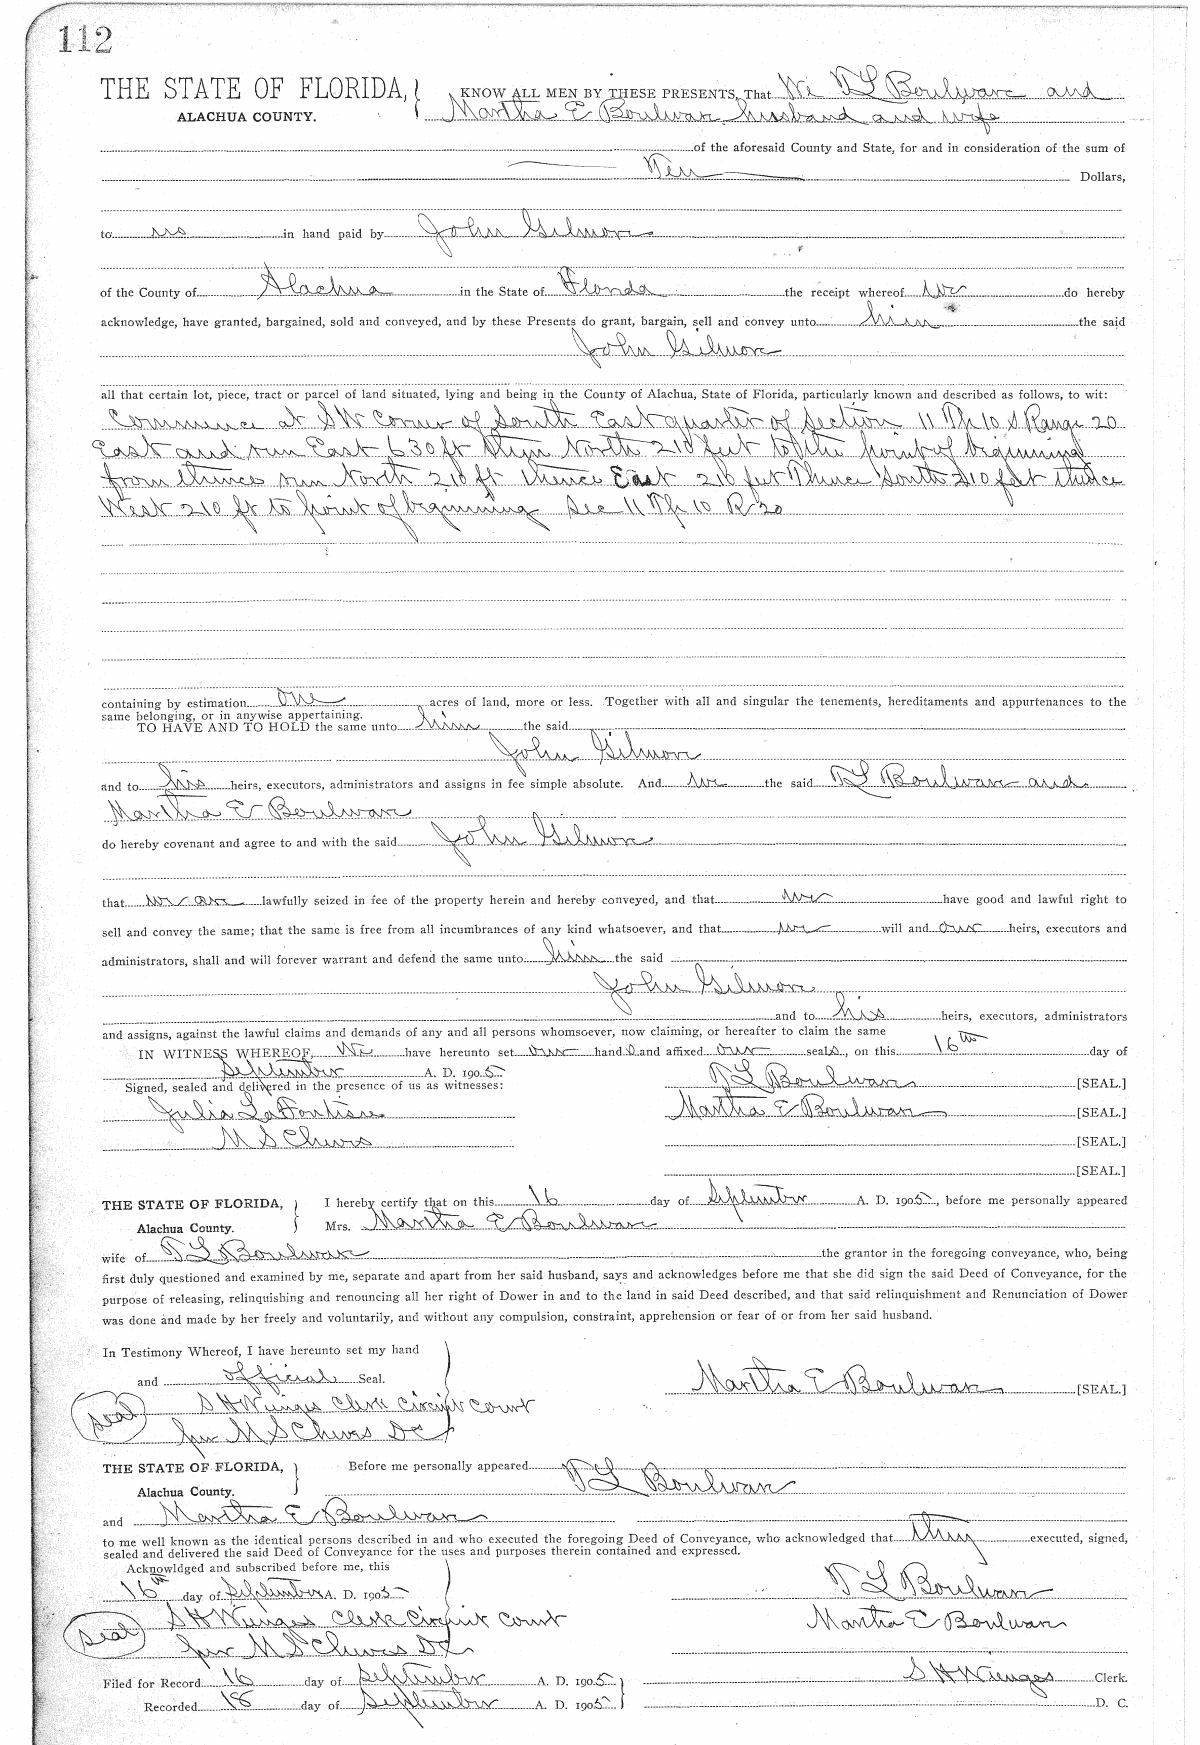 112
THE STATE OF FLORIDA, KNOW ALL MEN BY THESE PRESENTS, That We T L Boulware and
ALACHUA COUNTY. Martha E Boulware husband and wife
of the aforesaid County and State, for and in consideration of the sum of
Ten Dollars,
to us in hand paid by John Gilmore
of the County of Alachua in the State of Florida the receipt whereof we do hereby
acknowledge, have granted, bargained, sold and conveyed, and by these Presents do grant, bargain, sell and convey unto him the said
John Gilmore
all that certain lot, piece, tract or parcel of land situated, lying and being in the County of Alachua, State of Florida, particularly known and described as follows, to wit:
Commence at SW Corner of South East quarter of Section 11 Tp 10 S Range 20
East and run East 630 ft then North 210 feet to the point of beginning
from thence run North 210 ft thence East 210 feet Thence South 210 feet thence
West 210 ft to point of beginning Sec 11 Tp 10 R 20
containing by estimation one acres of land, more or less. Together with all and singular the tenements, hereditaments and appurtenances to the
same belonging, or in anywise appertaining.
TO HAVE AND TO HOLD the same unto him the said
John Gilmore
and to his heirs, executors, administrators and assigns in fee simple absolute. And we the said T L Boulware and
Martha E Boulware
do hereby covenant and agree to and with the said John Gilmore
that we are lawfully seized in fee of the property herein and hereby conveyed, and that we have good and lawful right to
sell and convey the same; that the same is free from all incumbrances of any kind whatsoever, and that we will and our heirs, executors and
administrators, shall and will forever warrant and defend the same unto him the said
John Gilmore
and to his heirs, executors, administrators
and assigns, against the lawful claims and demands of any and all persons whomsoever, now claiming, or hereafter to claim the same
IN WITNESS WHEREOF, We have hereunto set our hands and affixed our seals, on this 16th day of
September A. D. 1905
Signed, sealed and delivered in the presence of us as witnesses: T L Boulware [SEAL.]
Julia La Fontisee Martha E Boulware [SEAL.]
M S Cheves [SEAL.]
[SEAL.]
THE STATE OF FLORIDA, I hereby certify that on this 16 day of September A. D. 1905, before me personally appeared
Alachua County. Mrs. Martha E Boulware
wife of T L Boulware the grantor in the foregoing conveyance, who, being
first duly questioned and examined by me, separate and apart from her said husband, says and acknowledges before me that she did sign the said Deed of Conveyance, for the
purpose of releasing, relinquishing and renouncing all her right of Dower in and to the land in said Deed described, and that said relinquishment and Renunciation of Dower
was done and made by her freely and voluntarily, and without any compulsion, constraint, apprehension or fear of or from her said husband.
In Testimony Whereof, I have hereunto set my hand
and official Seal. Martha E Boulware [SEAL.]
seal S H Wienges Clerk Circuit Court
per M S Cheves DC
THE STATE OF FLORIDA, Before me personally appeared T L Boulware
Alachua County.
and Martha E Boulware
to me well known as the identical persons described in and who executed the foregoing Deed of Conveyance, who acknowledged that they executed, signed,
sealed and delivered the said Deed of Conveyance for the uses and purposes therein contained and expressed.
Acknowldged and subscribed before me, this
16th day of September A. D. 1905 T L Boulware
seal S H Wienges Clerk Circuit Court Martha E Boulware
per M S Cheves DC
Filed for Record 16 day of September A. D. 1905 S H Wienges Clerk.
Recorded 18 day of September A. D. 1905 D. C.